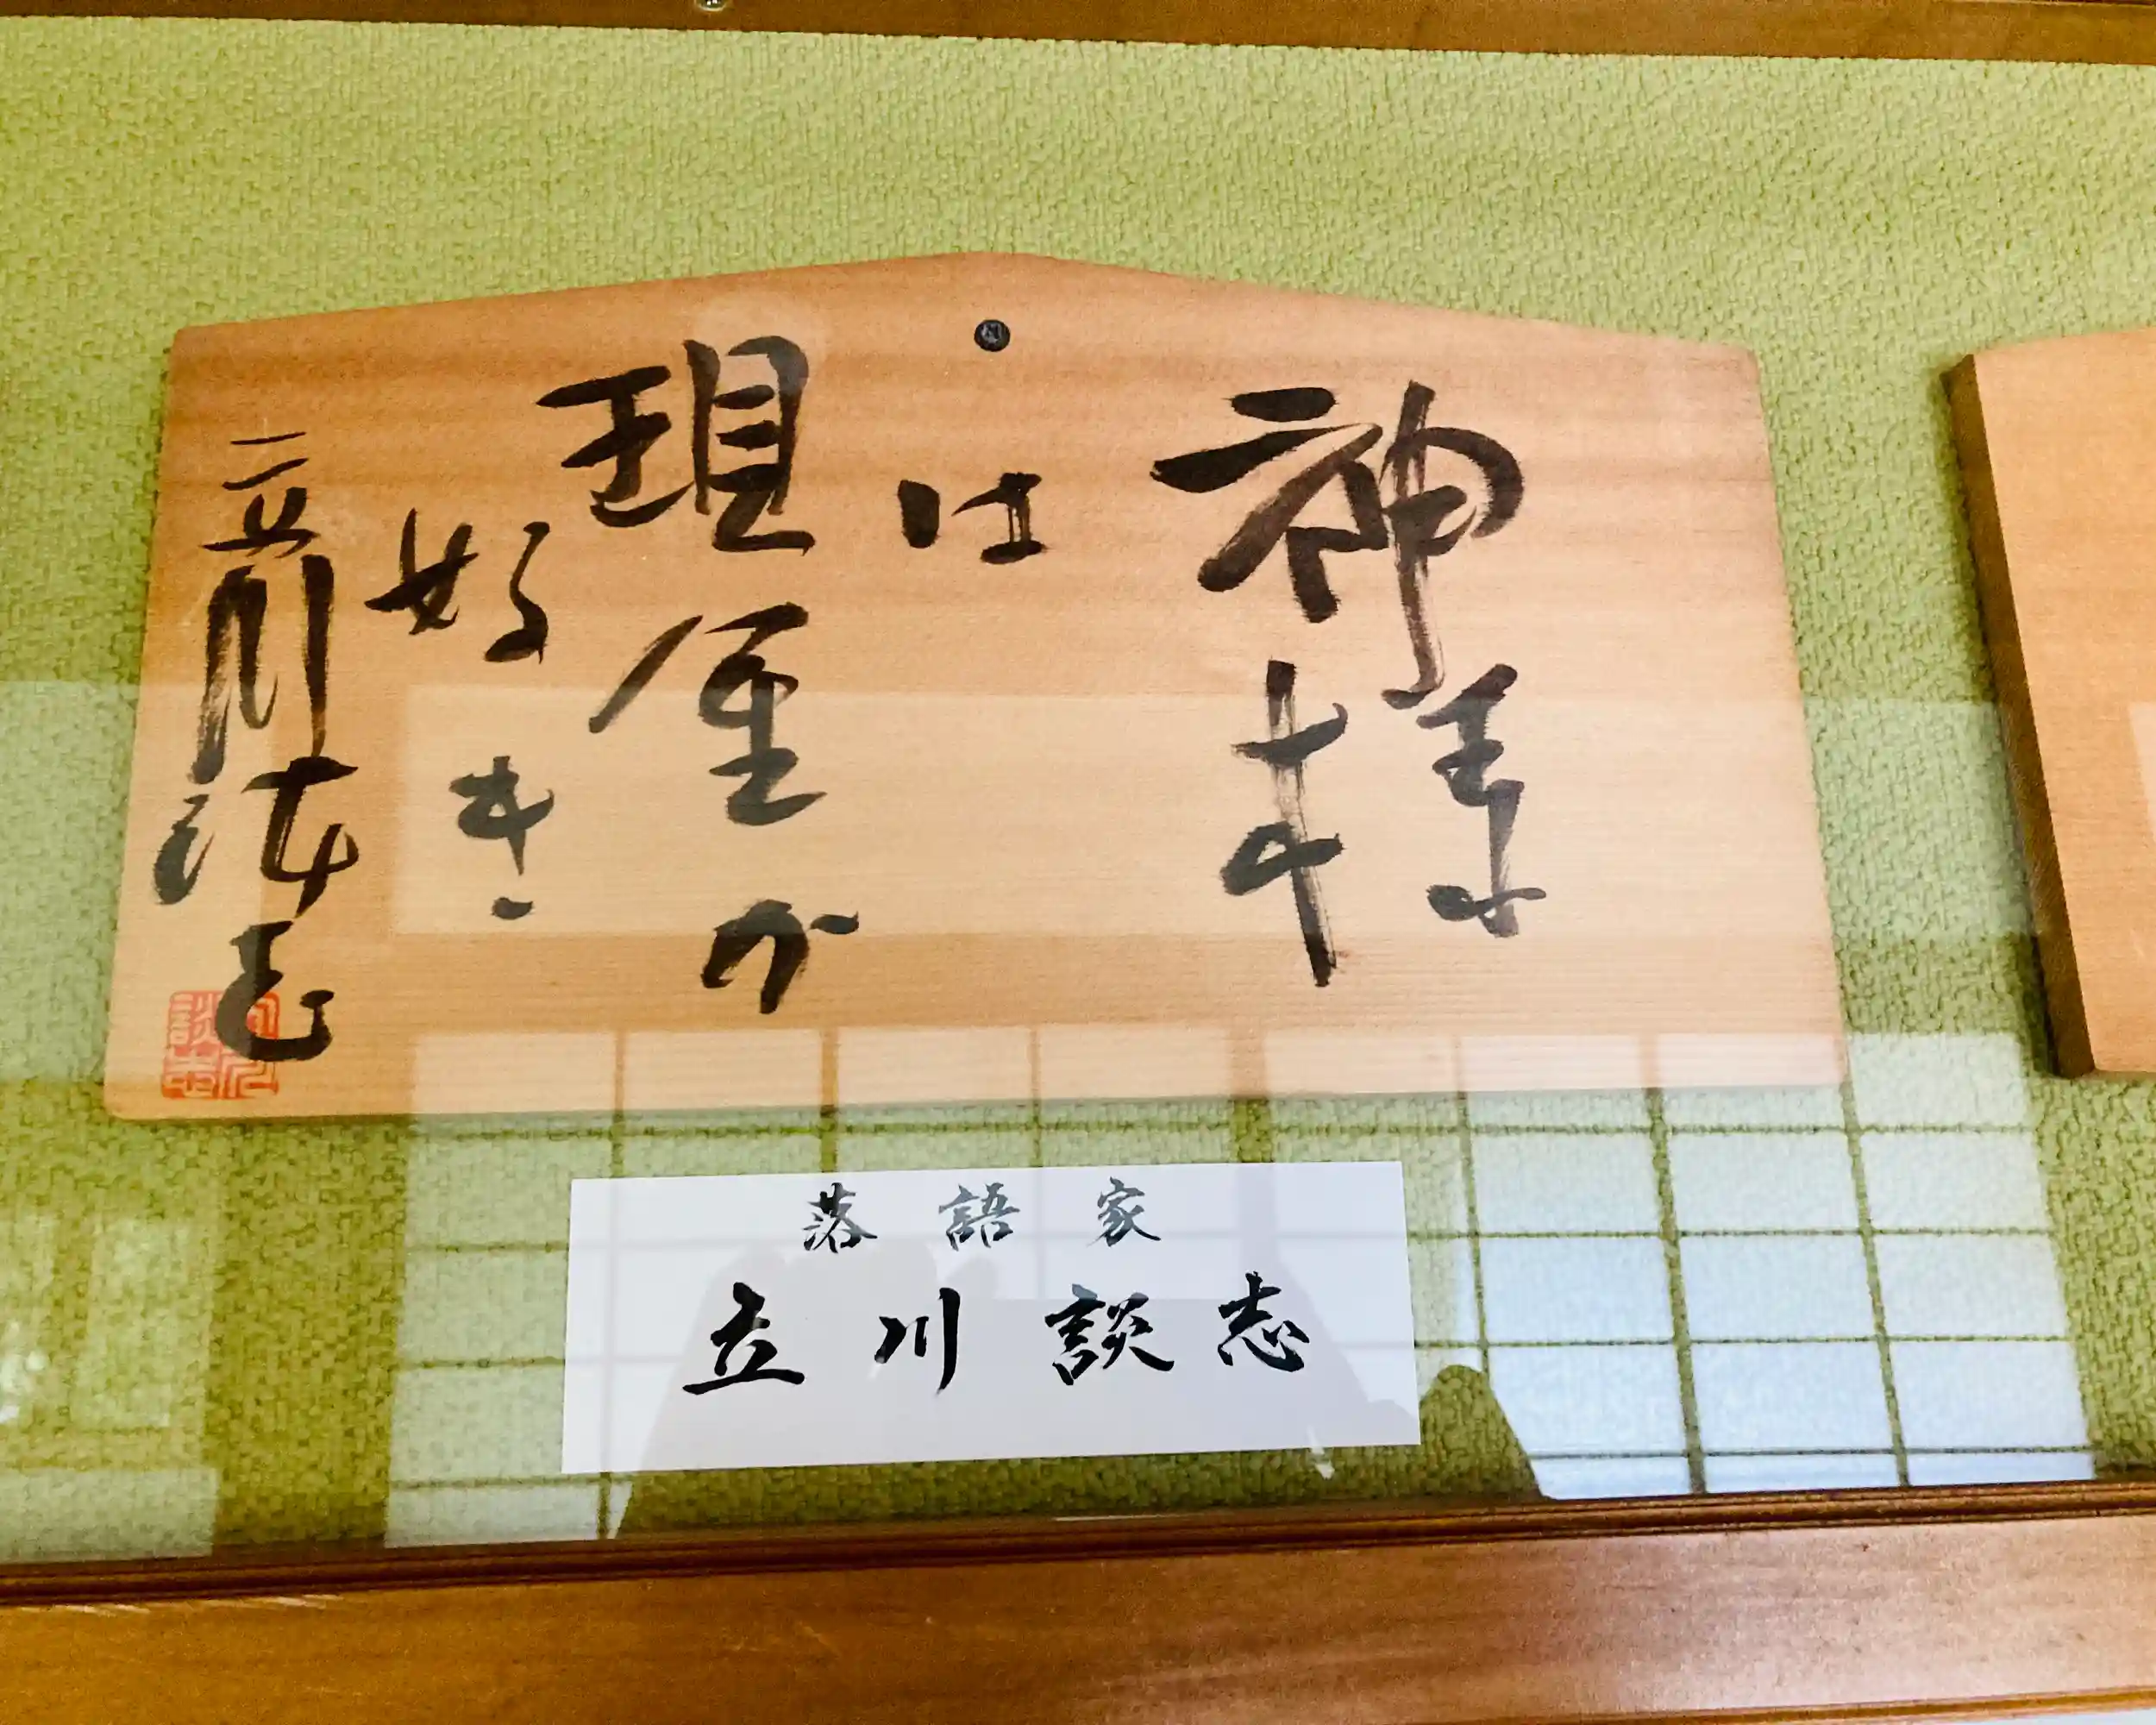 神様
は
現金が
好き
立川談志
談志
落語家
立川談志